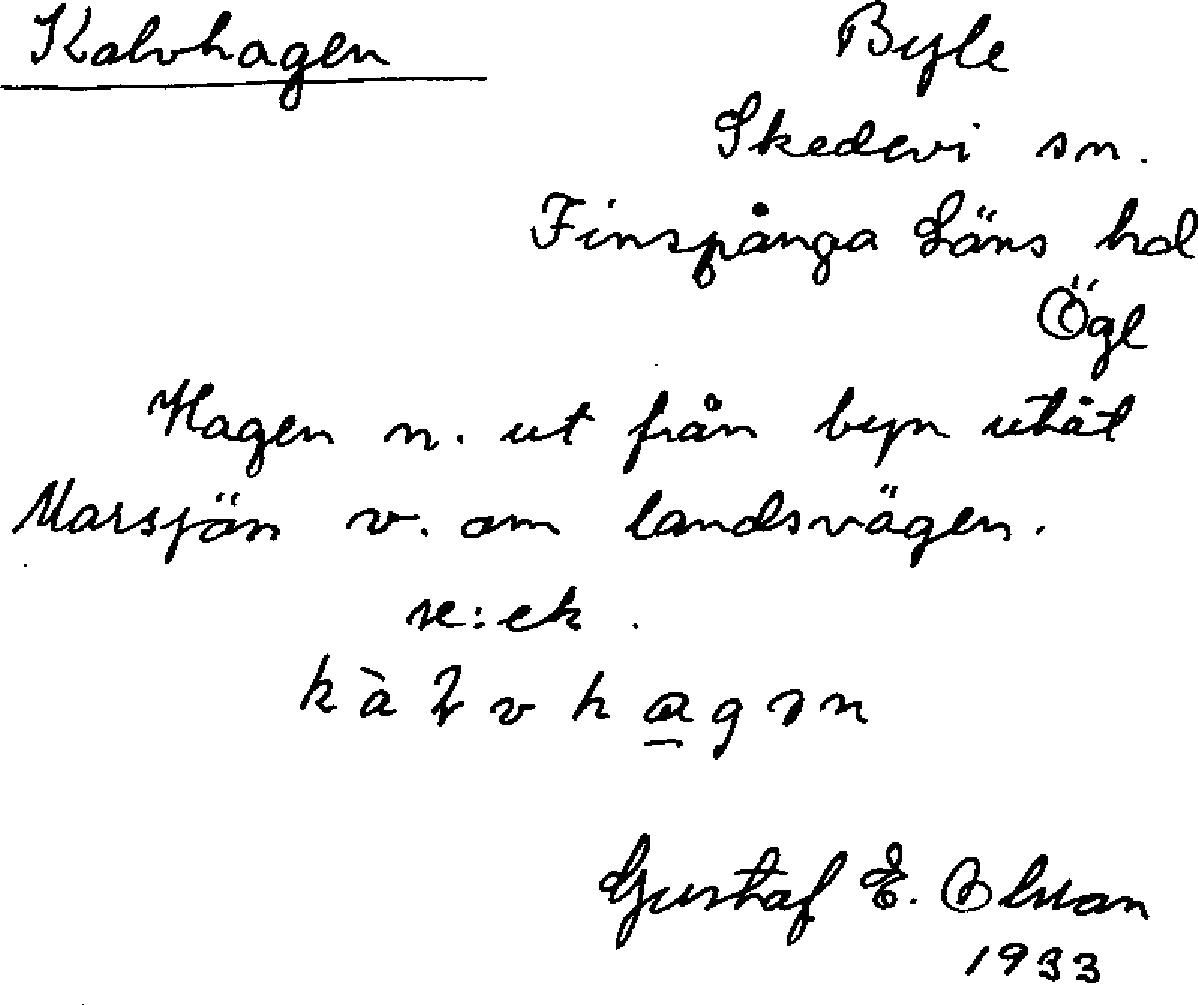 Kalvhagen
Byle
Skedevi sn.
Finspånga Läns hd
Ögl
Hagen n. ut från byn utåt
Marsjön v. om landsvägen.
se: ek.
Gustaf E. Olsson
1933